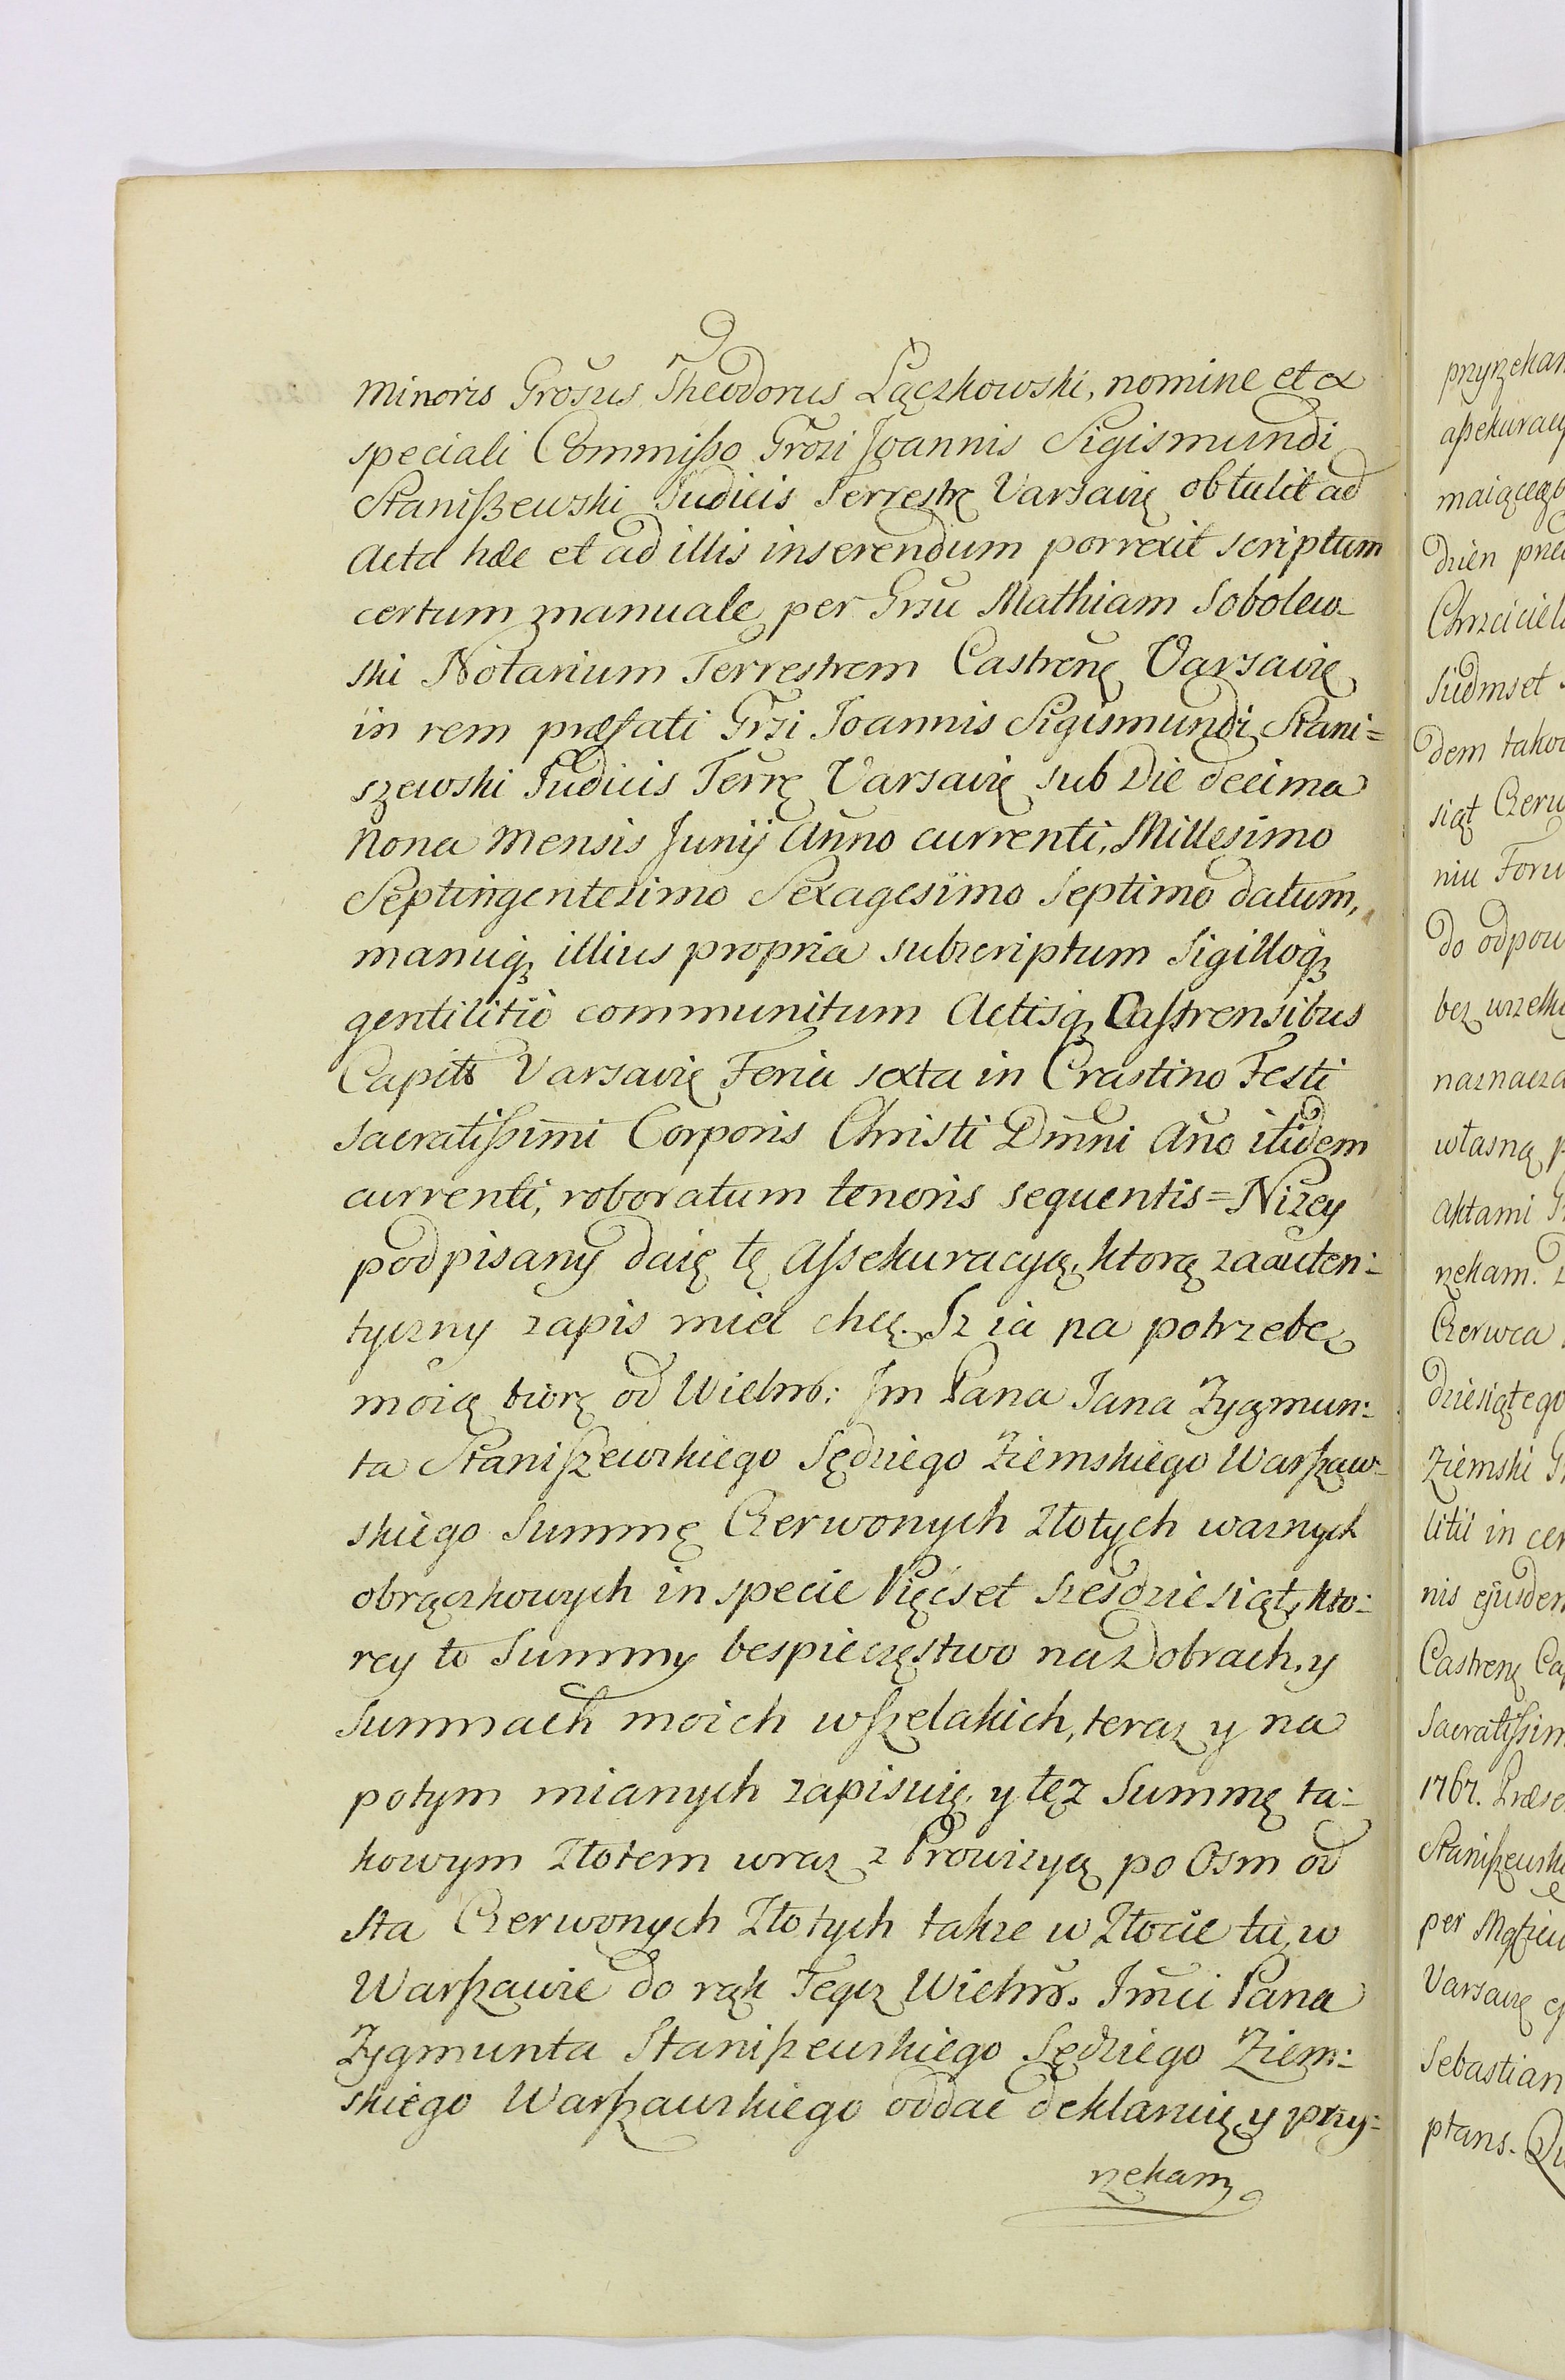 minoris Grosus Theodorus Łączkowski, nomine et ex
speciali Commißo Grosi Joannis Sigismundi
Stanißewski Judicis Terrestrę Varsavię obtulit ad
Acta hæc et ad illis inserendum porrexit scriptum
certum manuale per Grsu Mathiam Sobolew-
ski Notarium Terrestrem Castrenę Varsavię
in rem præfati Grsi Joannis Sigismundi Stani=
szewski Judicis Terrę Varsavię sub Die decima
nona mensis Junij Anno currenti, Millesimo
Septingentesimo Sexagesimo Septimo datum,
manuiqʒ illius propria subscriptum Sigilloqʒ
gentilitio communitum Actisqʒ Castrensibus
Capitt Varsavię Feria sexta in Crastino Festi
Sacratißimi Corporis Christi Dm̃ni Año itidem
currenti, roboratum tenoris sequentis = Nizey
podpisany daię tę Assekuracyą, ktorą za auten:
tyczny zapis miec chcę. Iz ia na potrzebę
moią biorę od Wielm̃o: Jm Pana Jana Zygmun:
ta Stanißewskiego Sędziego Ziemskiego Warßaw-
skiego Summę Czerwonych Złotych waznych
obrączkowych in specie Pięcset szesdziesiąt, kto:
rey to Summy bespieczęstwo na Dobrach, y
Summach moich wßelakich, teraz y na
potym mianych zapisuię, y tęz Summę ta:
kowym Złotem wraz z Prowizyą po Osm od
sta Czerwonych Złotych takze w Złocie tu, w
Warßawie do rąk Tegoz Wielm̃o. Jm̃ci Pana
Zygmunta Stanißewskiego Sędziego Ziem:
skiego Warßawskiego oddac deklaruię, y przy:
rzekam
przyrzekam
aßekuracy
maiącego
dzien prze
Chrzciciel
Siudmset
dem tako
siąt Czerw
niu Foru
do odpow
bez wszelki
naznacza
własną p
Aktami G
rzekam.
Czerwca
dziesiątego
Ziemski G
litii in cer
nis ejusdem
Castrenę Cap
Sacratißim
1767. Præse
Stanißewski
per Mgficu
Varsavię
Sebastian
ptans. Qu